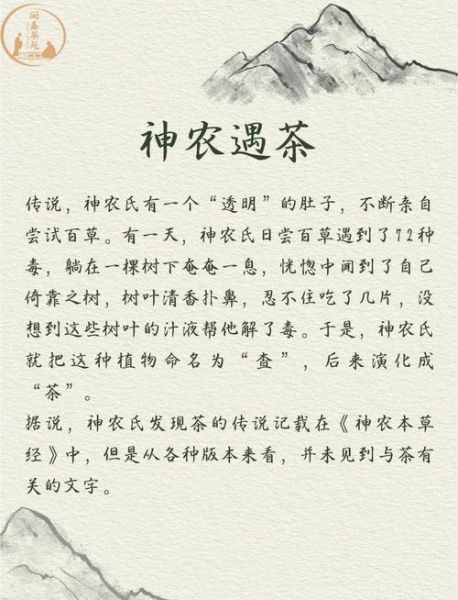 闻喜茶苑
神农遇茶
传说，神农氏有一个“透明”的肚子，不断亲自
尝试百草。有一天，神农氏日尝百草遇到了72种
毒，躺在一棵树下奄奄一息，恍惚中闻到了自己
倚靠之树，树叶清香扑鼻，忍不住吃了几片，没
想到这些树叶的汁液帮他解了毒。于是，神农氏
就把这种植物命名为“查”，后来演化成
“茶”。
据说，神农氏发现茶的传说记载在《神农本草
经》中，但是从各种版本来看，并未见到与茶有
关的文字。